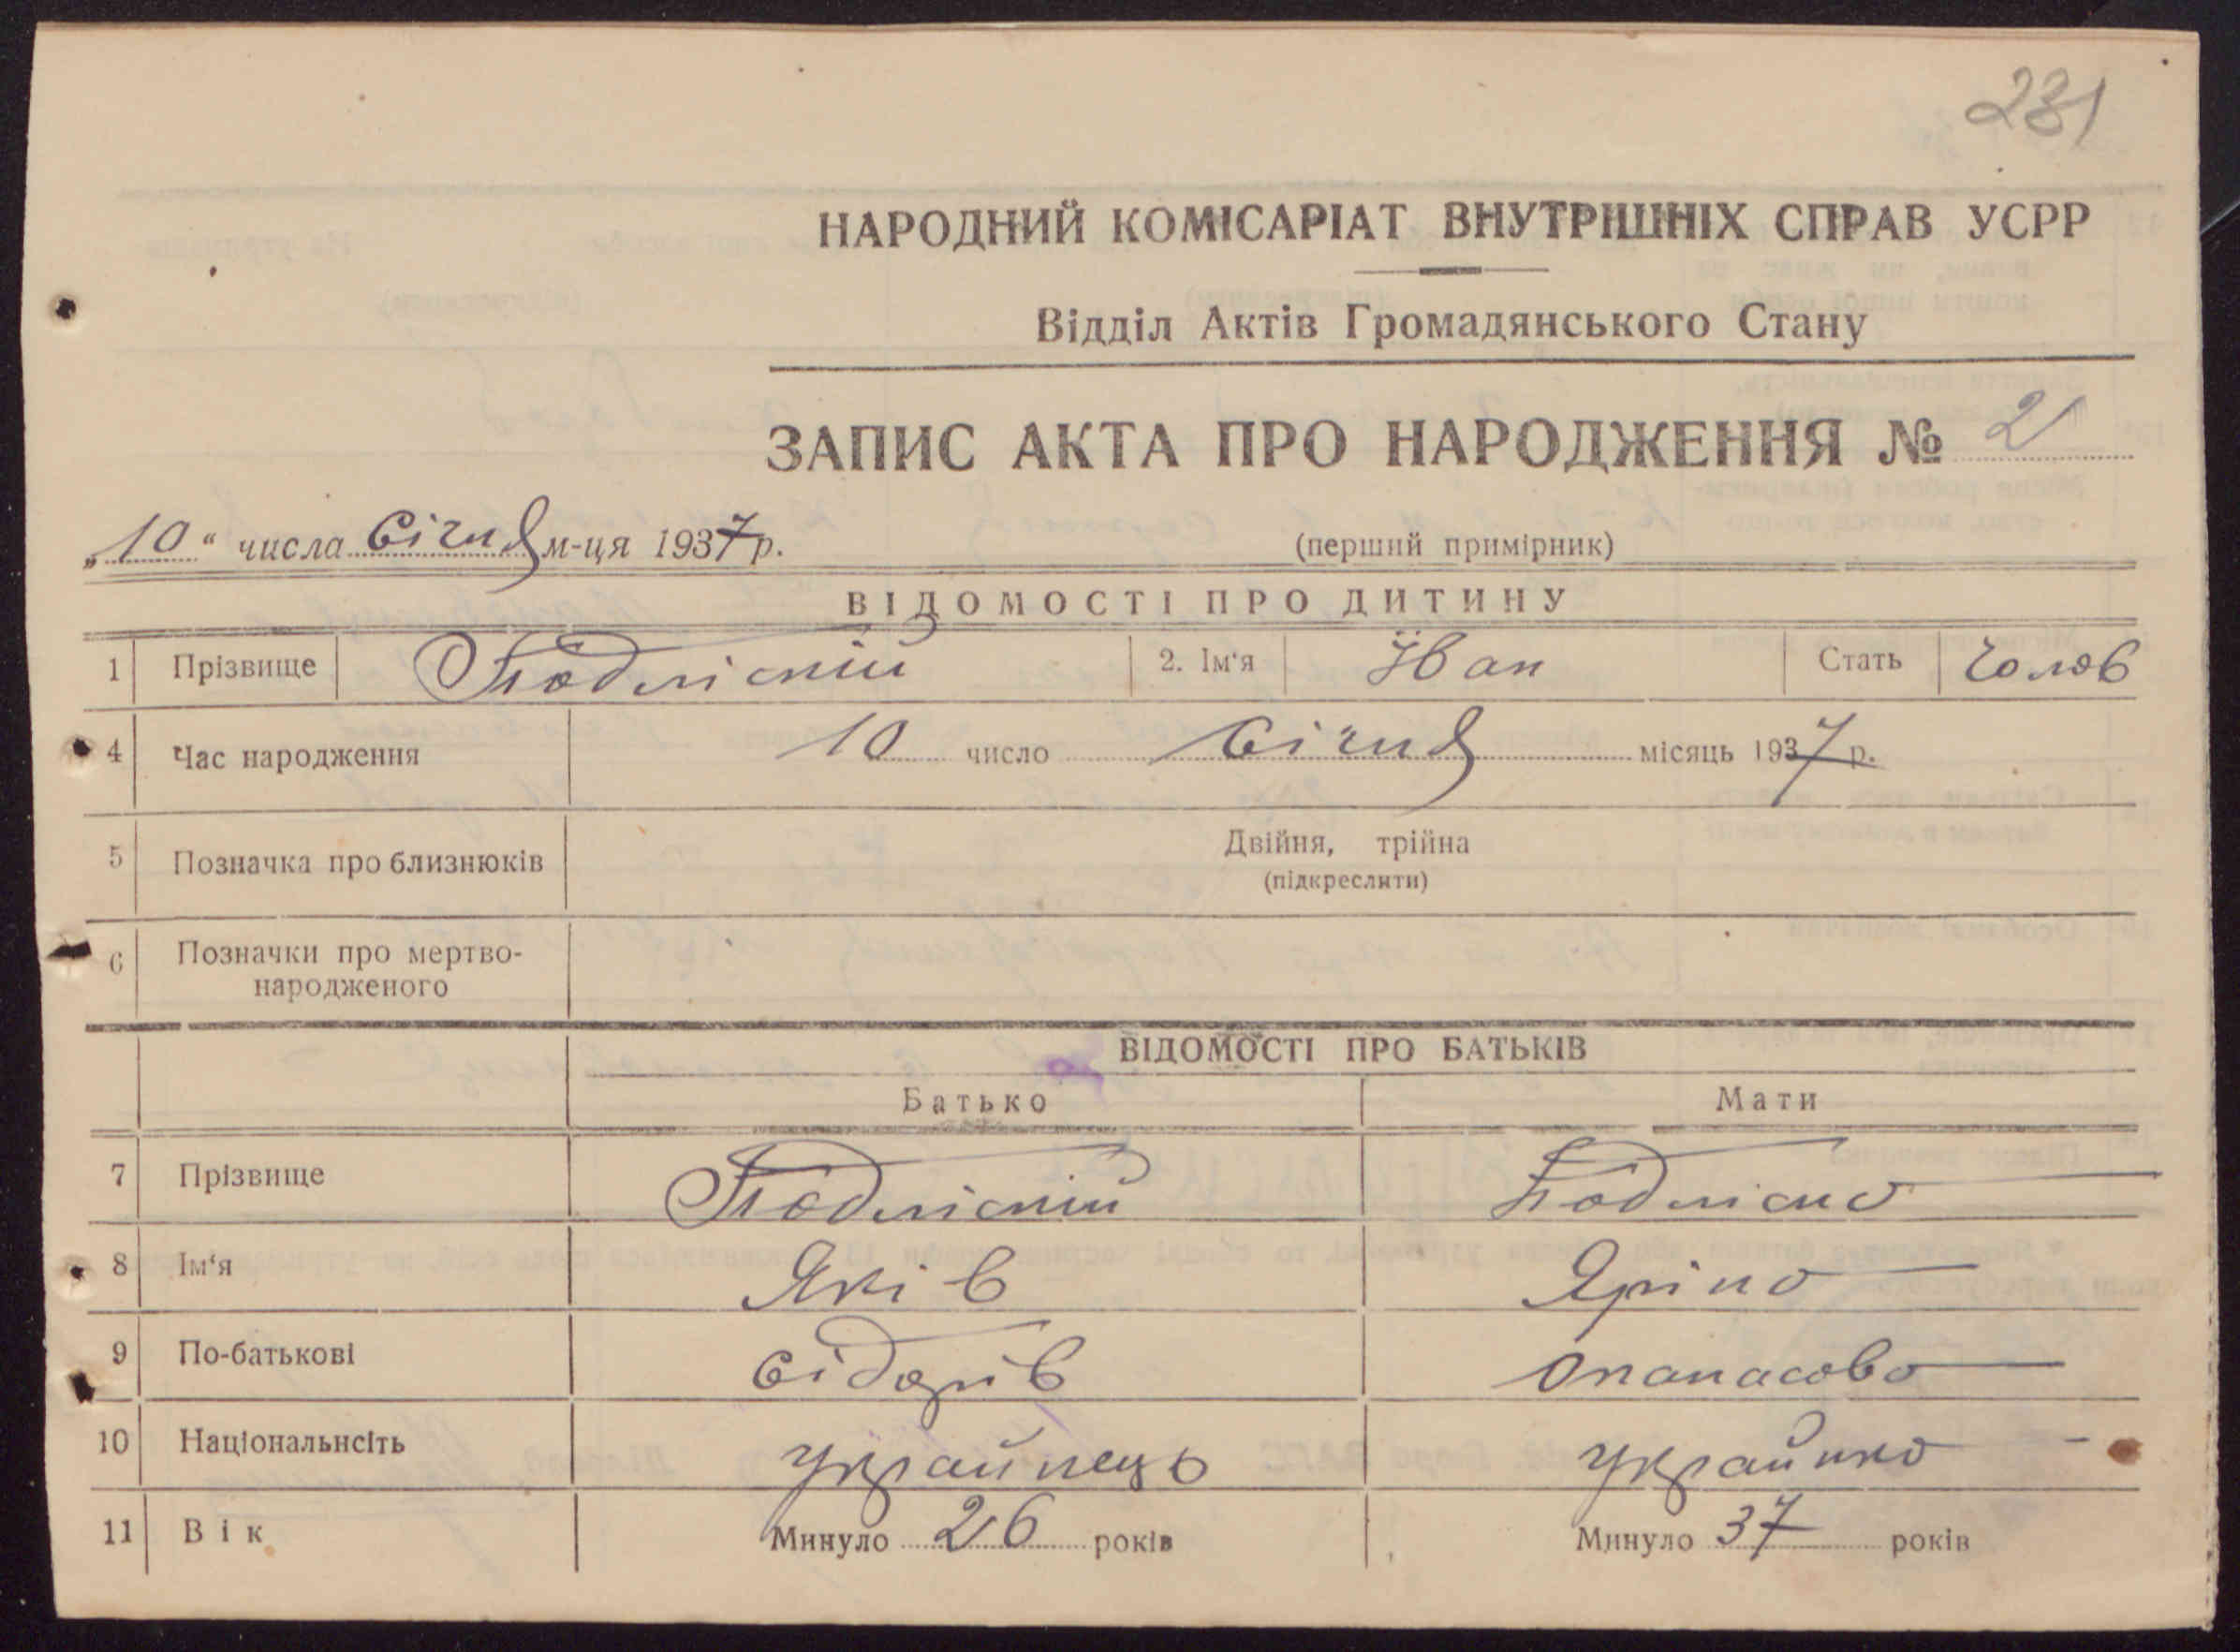 231
НАРОДНИЙ КОМІСАРІАТ ВНУТРІШНІХ СПРАВ УСРР
Відділ Актів Громадянського Стану
ЗАПИС АКТА ПРО НАРОДЖЕННЯ № 2
„10“ числа Січня м-ця 1937 р. (перший примірник)
ВІДОМОСТІ ПРО ДИТИНУ
1 Прізвище Подліскій 2. Ім'я Іван Стать Чолов
4 Час народження 10 число Січня місяць 1937 р.
5 Позначка про близнюків Двійня, трійна
(підкреслити)
6 Позначки про мертво-
народженого
ВІДОМОСТІ ПРО БАТЬКІВ
Батько Мати
7 Прізвище Подліскій Подліска
8 Ім'я Яків Яріна
9 По-батькові Сідорів Опанасова
10 Національнсіть Українець Українка
11 Вік Минуло 26 років Минуло 37 років